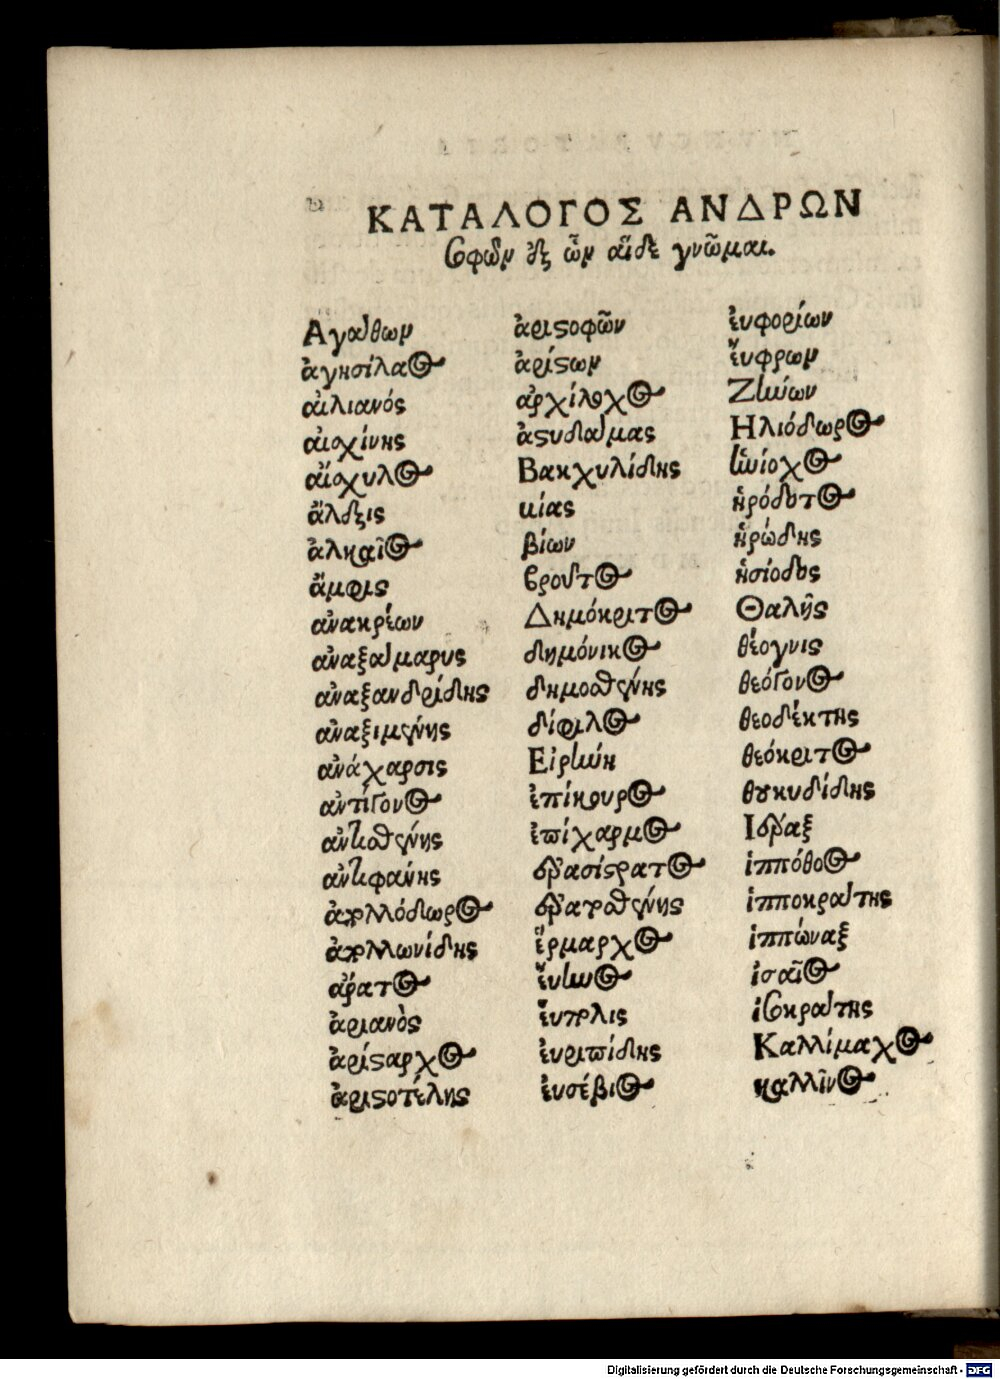 ΚΑΤΑΛΟΓΟΣ ΑΝΔΡΩΝ
σοφῶν ἐξ ὧν αἵδε γνῶμαι.
Αγάθων
ἀγησίλαος
αἰλιανός
αἰσχίνης
αἴσχυλος
ἄλεξις
ἀλκαῖος
ἄμφις
ἀνακρέων
ἀναξάμαρυς
ἀναξανδρίδης
ἀναξιμένης
ἀνάχαρσις
ἀντίγονος
ἀντισθένης
ἀντιφάνης
ἀπολλόδωρος
ἀπολλωνίδης
ἄρατος
ἀριανὸς
ἀρίσταρχος
ἀριστοτέλης
ἀριστοφῶν
ἀρίστων
ἀρχίλοχος
ἀστυδάμας
Βακχυλίδης
κίας
βίων
βροῦτος
Δημόκριτος
δημόνικος
δημοσθένης
δίφιλος
Εἰρήνη
ἐπίκουρος
ἐπίχαρμος
ἐρασίστρατος
ἐρατοσθένης
ἕρμαρχος
ἔυηνος
ἔυπολις
ἐυριπίδης
ἐυσέβιος
ἐυφορίων
ἔυφρων
Ζήνων
Ηλιόδωρος
ἡνίοχος
ἡρόδοτος
ἡρώδης
ἡσίοδος
Θαλῆς
θέογνις
θεόγονος
θεοδέκτης
θεόκριτος
θουκυδίδης
Ιέραξ
ἱππόθοος
ἱπποκράτης
ἱππώναξ
ἰσαῖος
ἰσοκράτης
Καλλίμαχος
καλλῖνος
Digitalisierung gefördert durch die Deutsche Forschungsgemeinschaft - DFG